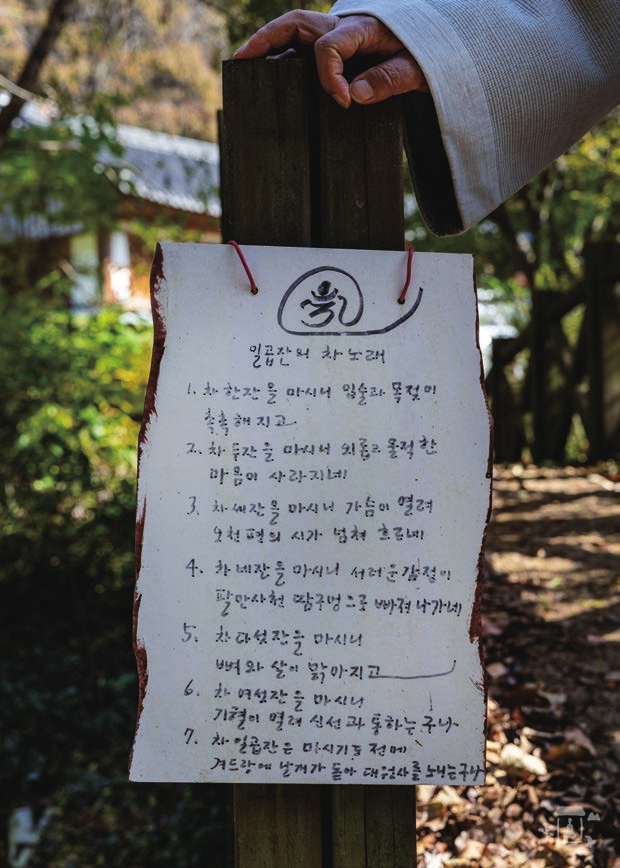 일곱잔의 차노래
1. 차 한잔을 마시니 입술과 목젖이
촉촉해지고
2. 차 두잔을 마시니 외롭고 울적한
마음이 사라지네
3. 차 세잔을 마시니 가슴이 열려
오천편의 시가 넘쳐 흐르네
4. 차 네잔을 마시니 서러운 감정이
팔만사천 땀구멍으로 빠져나가네
5. 차 다섯잔을 마시니
뼈와 살이 맑아지고
6. 차 여섯잔을 마시니
기혈이 열려 신선과 통하는구나
7. 차 일곱잔은 마시기도 전에
겨드랑에 날개가 돋아 대원사를 노니는구나